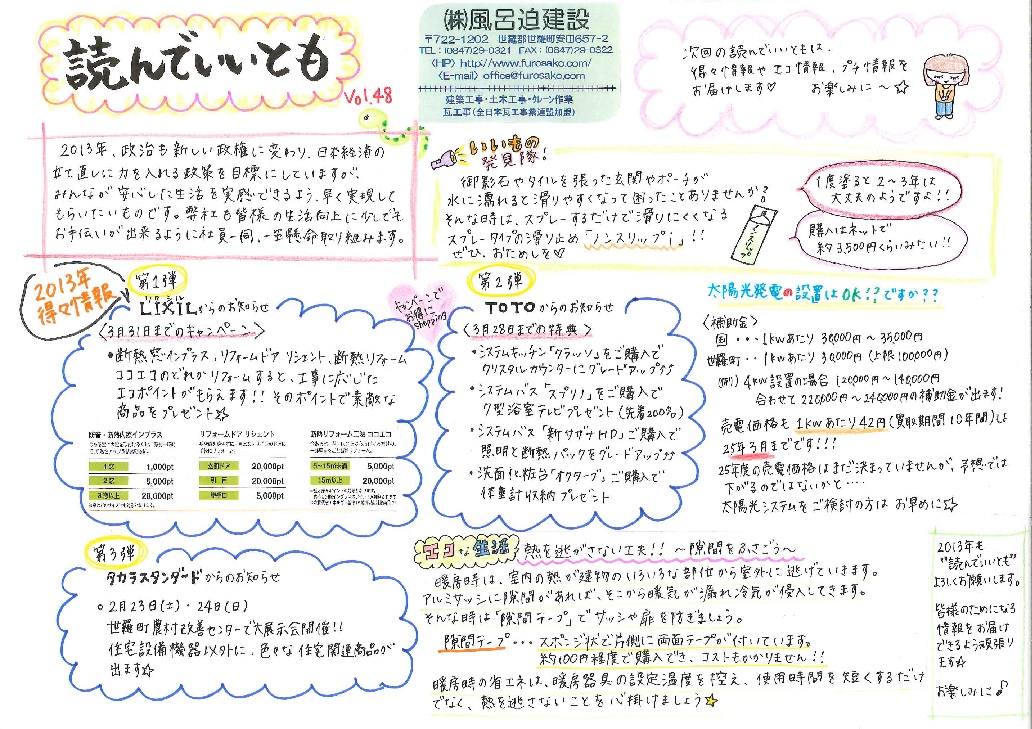 読んでいいとも
Vol.48
(株)風呂迫建設
〒722-1202 世羅郡世羅町安田657-2
TEL:(0847)29-0321 FAX:(0847)29-0322
(HP) http://www.furosako.com/
(E-mail) office@furosako.com
建築工事・土木工事・クレーン作業
瓦工事(全日本瓦工事業連盟加盟)
次回の読んでいいともは、
得々情報やエコ情報、プチ情報を
お届けします♡ お楽しみに～☆
2013年、政治も新しい政権に変わり、日本経済の
立て直しに力を入れる政策を目標にしていますが、
みんなが安心した生活を実感できるよう、早く実現して
もらいたいものです。弊社も皆様の生活向上に少しでも
お手伝いが出来るように社員一同、一生懸命取り組みます。
いいもの
発見隊!
御影石やタイルを張った玄関やポーチが
水に濡れると滑りやすくなって困ったことありませんか?
そんな時は、スプレーするだけで滑りにくくなる
スプレータイプの滑り止め「ノンスリップ」!!
ぜひ、おためしを♡
ノンスリップ
1度塗ると2～3年は
大丈夫のようですよ!!
購入はネットで
約3,500円くらいみたい!!
2013年
得々情報
第1弾
LIXILからのお知らせ
〈3月31日までのキャンペーン〉
・断熱窓インプラス、リフォームドア リシェント、断熱リフォーム
ココエコのどれかリフォームすると、工事に応じた
エコポイントがもらえます!! そのポイントで素敵な
商品をプレゼント☆
リフォームドア リシェント
断熱リフォーム工法 ココエコ
1,000pt
5,000pt
20,000pt
玄関ドア 20,000pt
20,000pt
5,000pt
5～15m未満 5,000pt
15m以上 20,000pt
キャンペーンで
お得に
shopping
第2弾
TOTOからのお知らせ
〈3月28日までの特典〉
・システムキッチン「クラッソ」をご購入で
クリスタルカウンターにグレードアップ↑↑
・システムバス「スプリノ」をご購入で
7型浴室テレビプレゼント(先着200台)
・システムバス「新サザナHD」ご購入で
照明と断熱パックをグレードアップ↑↑
・洗面化粧台「オクターブ」ご購入で
体重計収納プレゼント
太陽光発電の設置はOK!?ですか??
〈補助金〉
国・・・1kwあたり 30,000円～35,000円
世羅町・・1kwあたり 30,000円(上限100,000円)
(例) 4kw設置の場合 120,000円～140,000円
合わせて 220,000円～240,000円の補助金が出ます!
売電価格も 1kwあたり42円(買取期間10年間)は
25年3月までです!!!
25年度の売電価格はまだ決まっていませんが、予想では
下がるのではないかと・・・・
太陽光システムをご検討の方は お早めに☆
第3弾
タカラスタンダードからのお知らせ
○2月23日(土)・24日(日)
世羅町農村改善センターで大展示会開催!!
住宅設備機器以外に、色々な住宅関連商品が
出ます☆
エコな生活
熱を逃がさない工夫!! ～隙間をふさごう～
暖房時は、室内の熱が建物のいろいろな部位から室外に逃げていきます。
アルミサッシに隙間があれば、そこから暖気が漏れ冷気が侵入してきます。
そんな時は「隙間テープ」でサッシや扉を防ぎましょう。
隙間テープ・・・スポンジ状で片側に両面テープが付いています。
約100円程度で購入でき、コストもかかりません!!
暖房時の省エネは、暖房器具の設定温度を控え、使用時間を短くするだけ
でなく、熱を逃さないことを心掛けましょう☆
2013年も
"読んでいいとも"
よろしくお願いします。
皆様のためになる
情報をお届け
できるよう頑張り
ます☆
お楽しみに♪